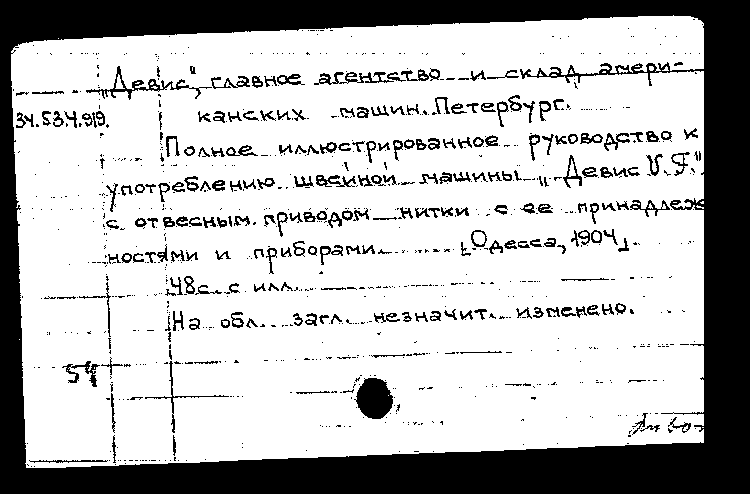 „Девис", главное агентство и склад амери-
34.53.4.919. канских машин. Петербург.
Полное иллюстрированное руководство к
употреблению швейной машины „Девис V. F."
с отвесным приводом нитки с ее принадлеж
ностями и приборами. [Одесса, 1904].
48с. с илл.
На обл. загл. незначит. изменено.
54